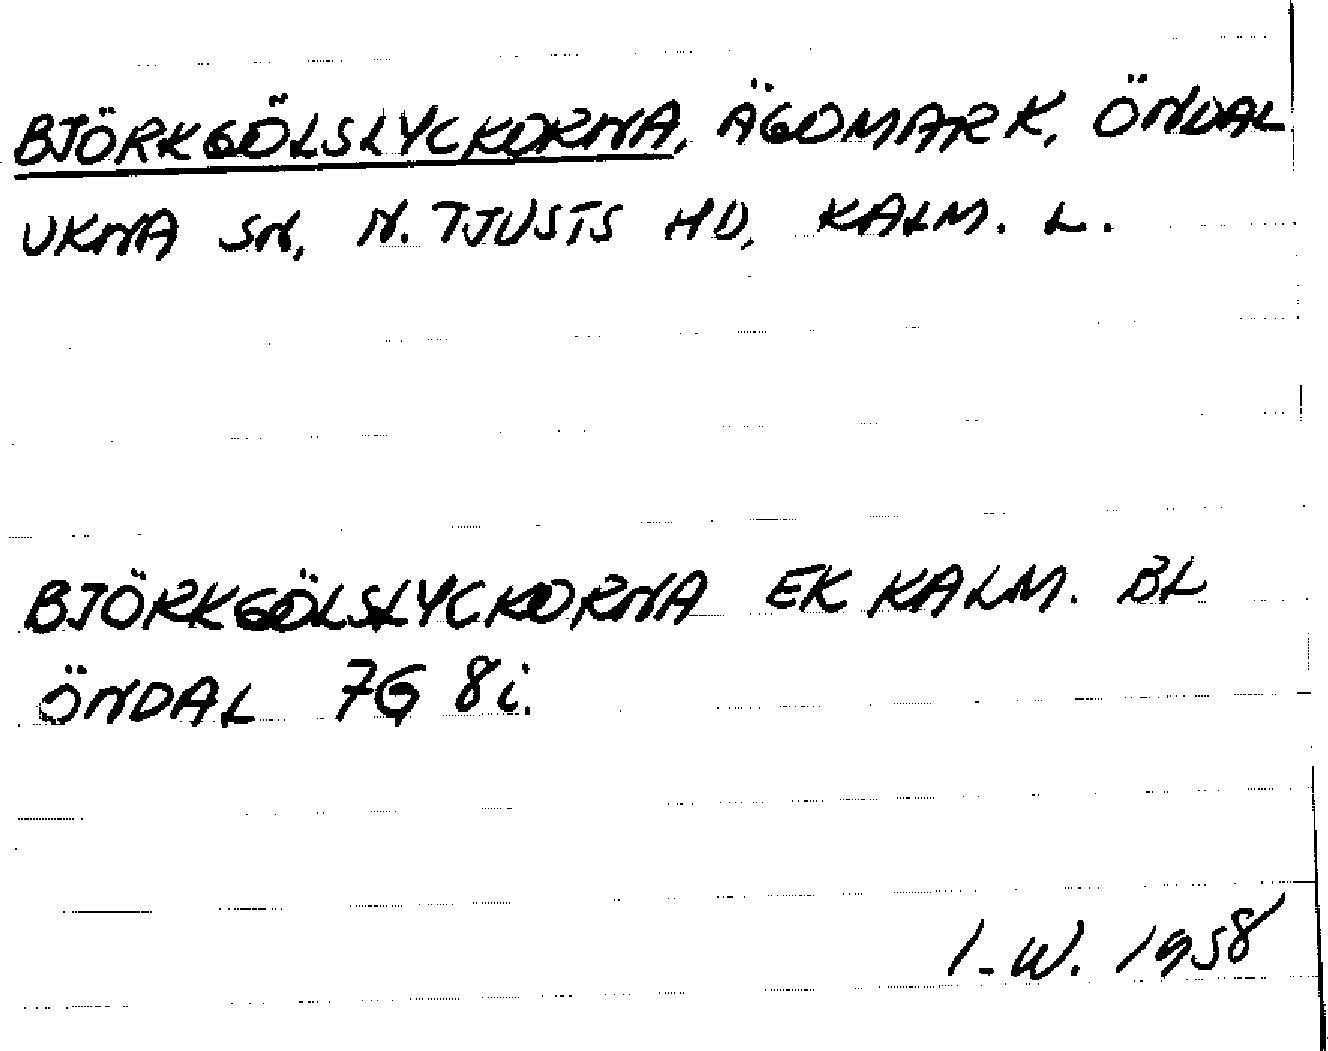 BJÖRKGÖLSLYCKORNA, ÄGOMARK, ÖNDAL
UKNA SN, N. TJUSTS HD, KALM. L.
BJÖRKGÖLSLYCKORNA EK KALM. BL
ÖNDAL 7G 8i.
I-W. 1958